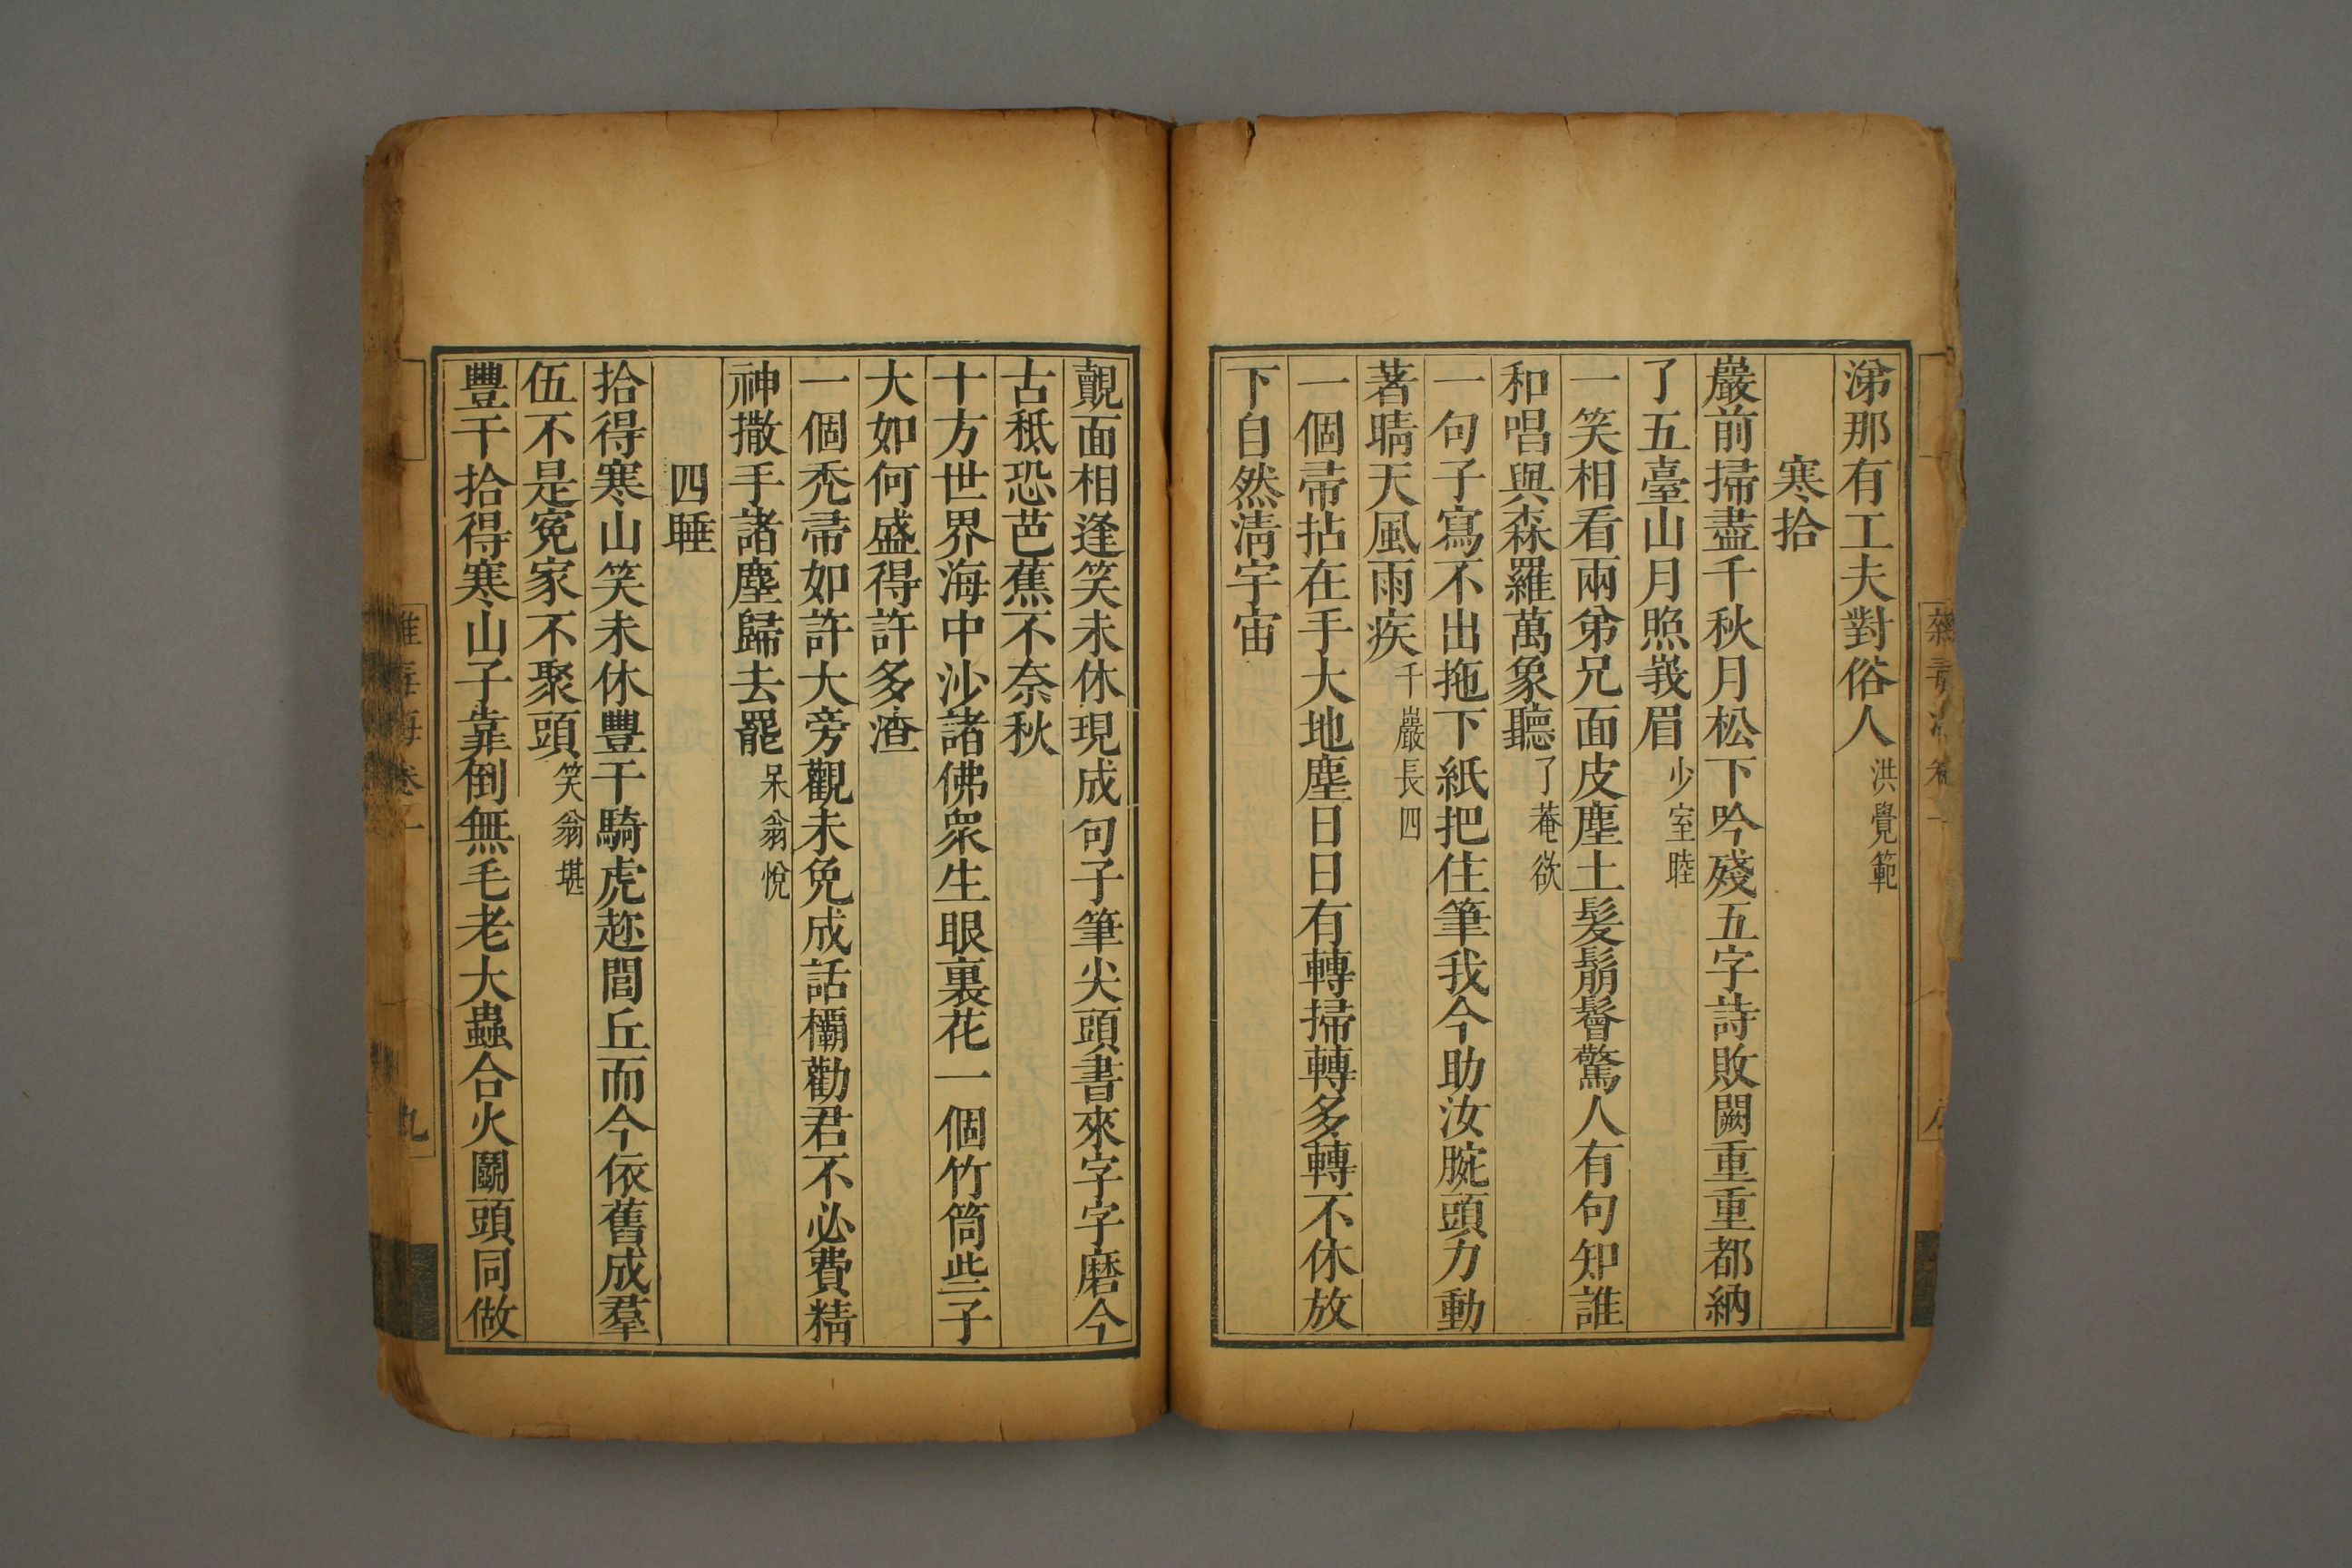 涕那有工夫對俗人洪覺範
寒拾
巖前掃盡千秋月松下吟殘五字詩敗闕重重都納
了五臺山月照峩眉少室睦
一笑相看兩弟兄面皮塵土髮鬅鬙驚人有句知誰
和唱與森羅萬象聽了菴欲
一句子寫不出拖下紙把住筆我今助汝腕頭力動
著晴天風雨疾千巖長四
一個帚拈在手大地塵日日有轉掃轉多轉不休放
下自然淸宇宙
覿面相逢笑未休現成句子筆尖頭書來字字磨今
古秪恐芭蕉不奈秋
十方世界海中沙諸佛衆生眼裏花一個竹筒些子
大如何盛得許多渣
一個禿帚如許大旁觀未免成話欛勸君不必費精
神撒手諸塵歸去罷呆翁悅
四睡
拾得寒山笑未休豐干騎虎趂閭丘而今依舊成羣
伍不是冤家不聚頭笑翁堪
豐干拾得寒山子靠倒無毛老大蟲合火鬭頭同做
卷一
九